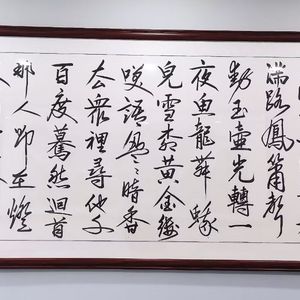 滿路鳳簫聲
動玉壺光轉一
夜魚龍舞蛾
兒雪柳黃金縷
咲語盈〻暗香
去衆裡尋他千
百度驀然迴首
那人却在燈